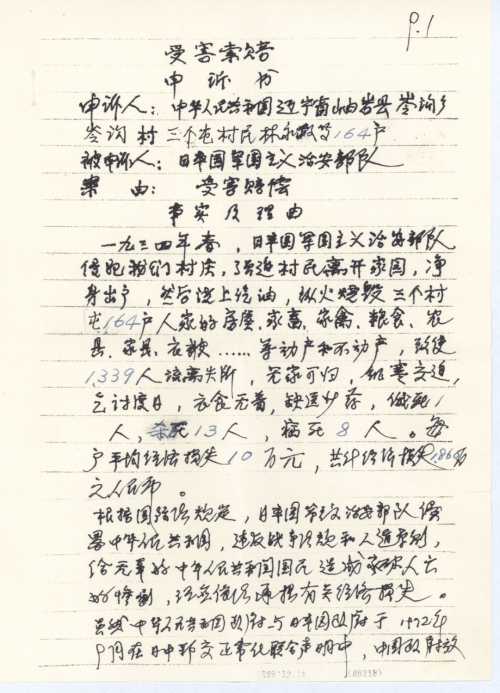 P.1
受害索赔
申诉书
申诉人：中华人民共和国辽宁省岫岩县岺沟乡
岺沟村三个屯村民林永毅等164户
被申诉人：日本国军国主义治安部队
案 由：受害赔偿
事实及理由
一九三四年春，日本国军国主义治安部队
侵犯我们村庄，强迫村民离开家园，净
身出户，然后浇上汽油，纵火烧毁三个村
屯164户人家的房屋、家畜、家禽、粮食、农
具、家具、衣被……等动产和不动产，致使
1339人流离失所，无家可归，饥寒交迫，
乞讨度日，衣食无着，缺医少药，饿死1
人，杀死13人，病死8人。每
户平均经济损失10万元，共计经济损失
之人民币。
根据国际法规定，日本国军国主义治安部队侵
略中华人民共和国，违反战争法规和人道原则，
给无辜的中华人民共和国国民造成家破人亡
的惨剧，还应偿还有关经济损失。
虽然中华人民共和国政府与日本国政府于1972年
9月在日中邦交正常化联合声明中，中国政府放